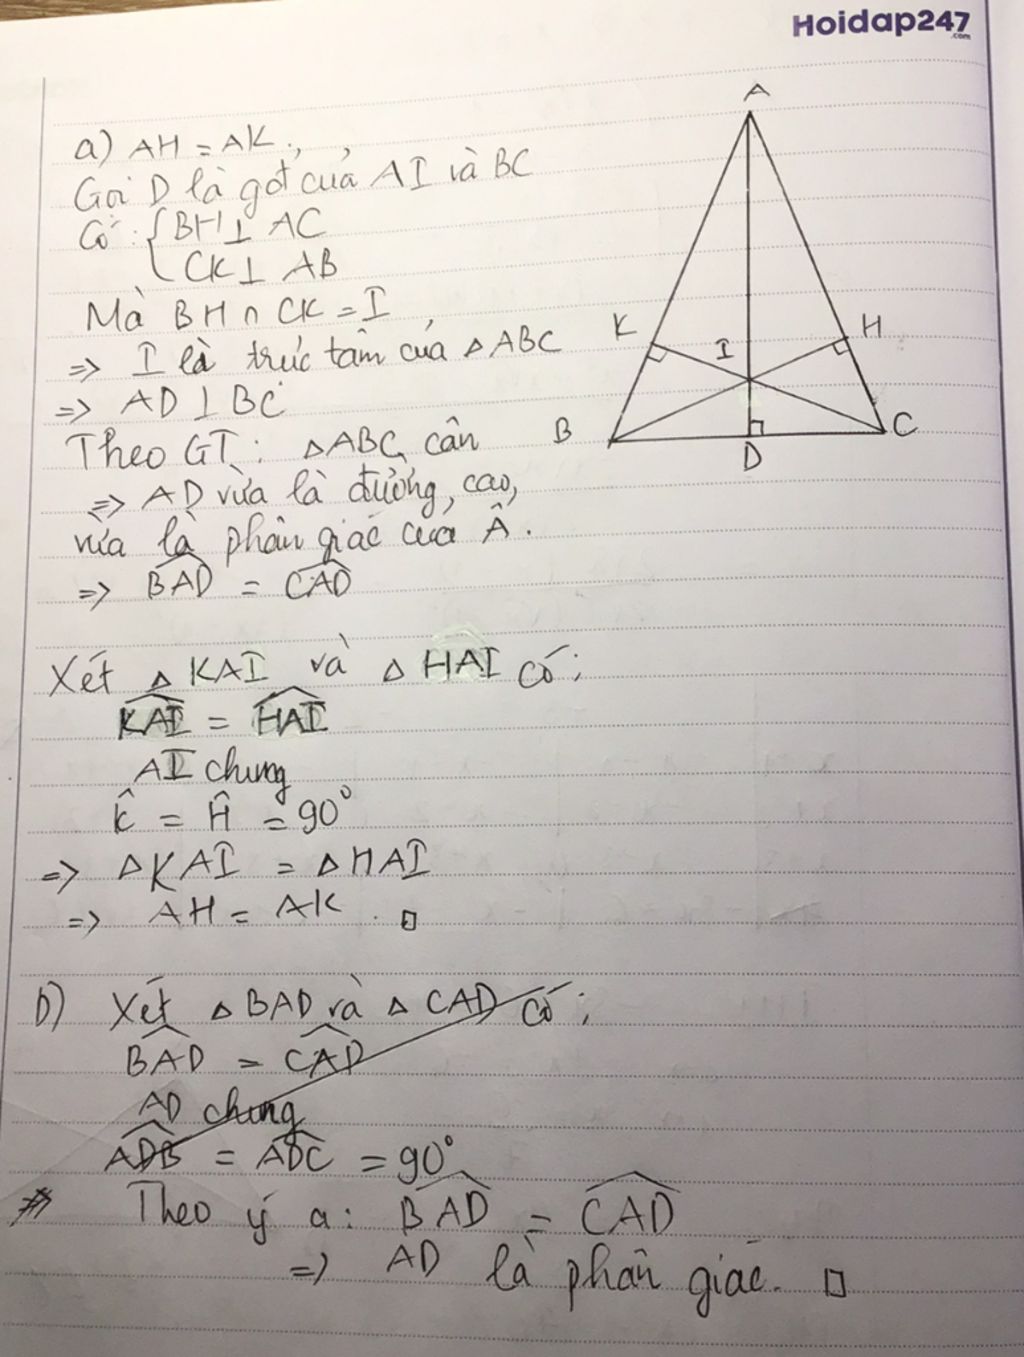 Hoidap247
.com
a) AH = AK.
Gọi D là gđ của AI và BC
Có: { BH ⊥ AC
CK ⊥ AB
Mà BH ∩ CK = I
=> I là trực tâm của △ABC
=> AD ⊥ BC
Theo GT: △ABC cân
=> AD vừa là đường cao,
vừa là phân giác của Â.
=> BAD = CAD
Xét △KAI và △HAI có:
KAI = HAI
AI chung
K̂ = Ĥ = 90°
=> △KAI = △HAI
=> AH = AK. □
b) Xét △BAD và △CAD có:
BAD = CAD
AD chung
ADB = ADC = 90°
Theo ý a: BAD = CAD
=> AD là phân giác. □
A
K
I
H
B
D
C